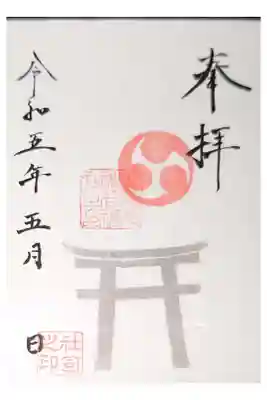 奉拝
令和五年五月 日
社司之印